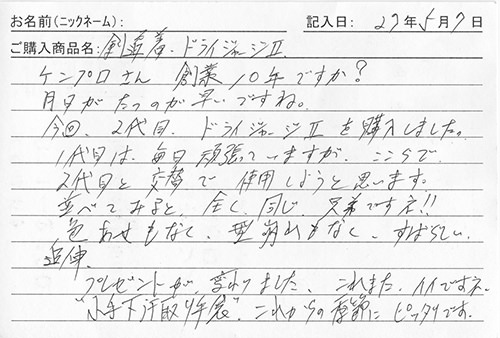 お名前(ニックネーム):
記入日: 27年5月7日
ご購入商品名: 剣道着・ドライジャージⅡ
ケンプロさん 創業10年ですか?
月日がたつのが早いですね。
今回、2代目、ドライジャージⅡを購入しました。
1代目は、毎日頑張っていますが、ここらで、
2代目と交替で使用しようと思います。
並べてみると、全く同じ、兄弟ですネ!!
色あせもなく、型崩れもなく、すばらしい。
追伸、
プレゼントが、変わりました、これまた、イイですネ
"小手下汗取り手袋" これからの季節にピッタリです。